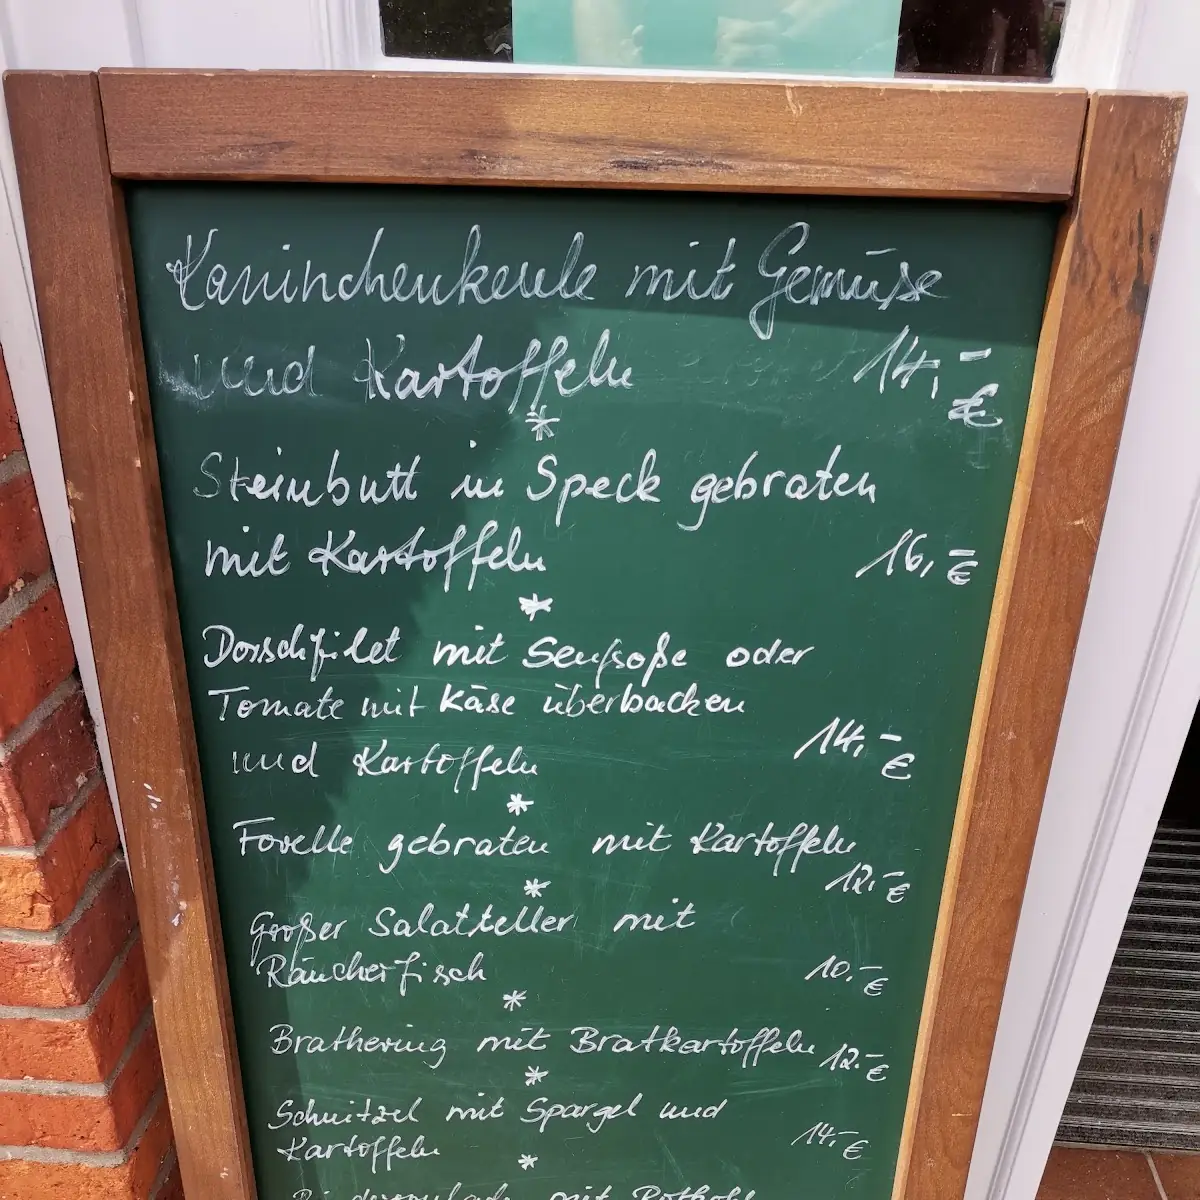 Kaninchenkeule mit Gemüse
und Kartoffeln 14,- €
*
Steinbutt in Speck gebraten
mit Kartoffeln 16,- €
*
Dorschfilet mit Senfsoße oder
Tomate mit Käse überbacken
und Kartoffeln 14,- €
*
Forelle gebraten mit Kartoffeln
12.- €
*
Großer Salatteller mit
Räucherfisch 10.- €
*
Brathering mit Bratkartoffeln 12.- €
*
Schnitzel mit Spargel und
Kartoffeln 14,- €
*
mit Rotkohl